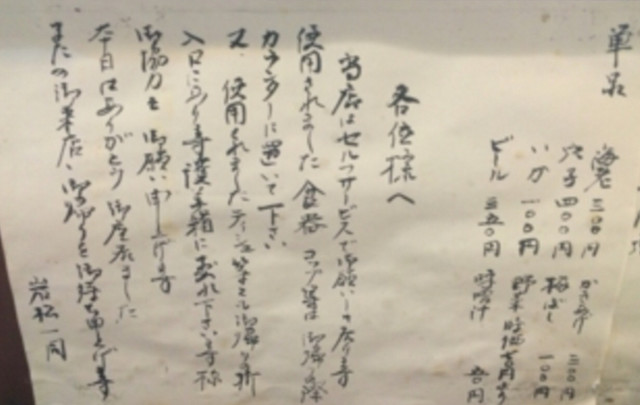 単品
海老 三00円 かきあげ 三00円
穴子 四00円 梅ぼし 一00円
いか 一00円 野菜
ビール 三五0円 味噌汁 五0円
各位様へ
当店はセルフサービスでお願いして居ります
使用されました食器 コップ等は御帰りの際
カウンターに置いて下さい
又、使用されましたティッシュ等も御帰りの折
入口にあります護美箱にお入れ下さいます様
御協力を御願い申上げます
本日はありがとう御座居ました
またの御来店、御待ち申上げます
岩松一同